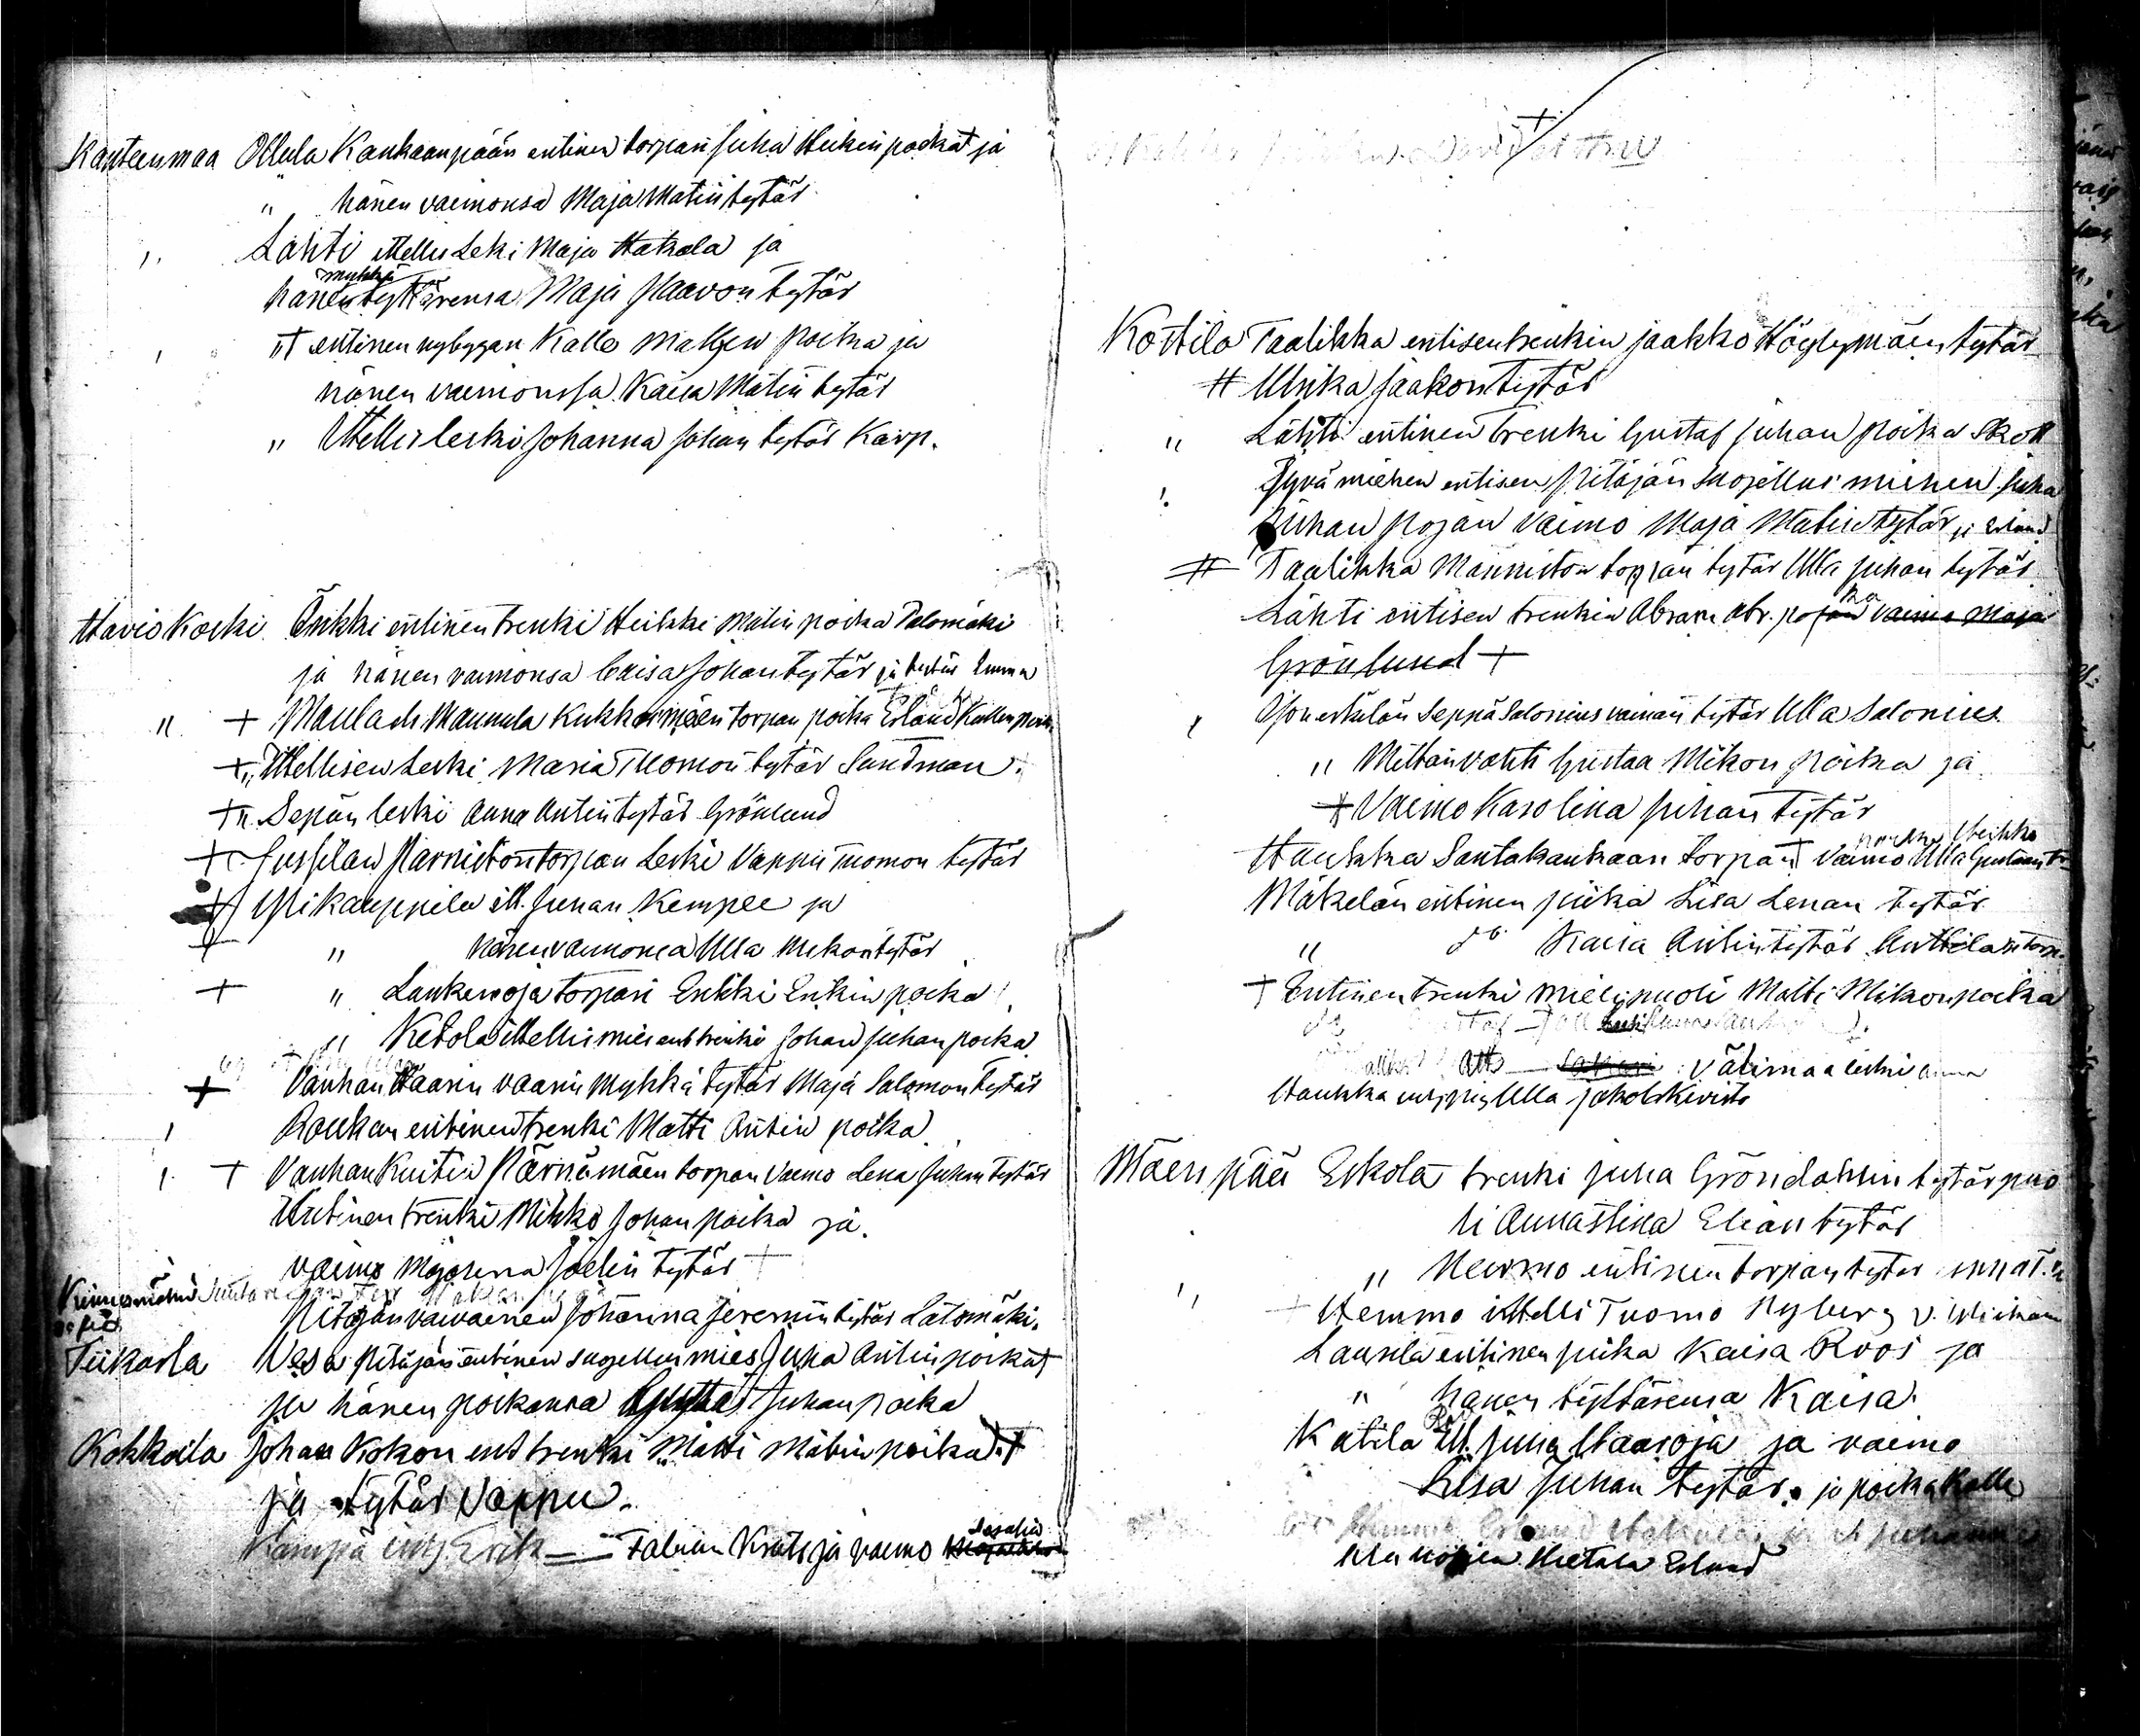 Kanteenmaa Ollula Kankaanpään entinen torpari Juha Heikin poika † ja
" hänen vaimonsa Maja Matin tytär
" Lähti ittellis Leki Maja Hakola ja
hänen mykkä tyttärensä Maja Paavon tytär
" † entinen nybyggari Kalle Mattsew poika ja
hänen vaimonssa Kaisa Matin tytär
" Ittellis leski Johanna Johan tytär Karp.
Havio Koski Önkki entinen trenki Heikki Matin poika Palomäki
ja hänen vaimonsa Caisa Johan tytär ja tytär Emma
" + Maulach Mannula Kukkoimäen torpan poika Erland Kallen poika
+ " Ittellisen Leski Maria Tuomon tytär Sundman.
+ " Sepän leski Anna Antin tytär Grönlund
+ Jussilan Parnistön torpan Leski Vappu Tuomon tytär
+ Ylikauppila itt. Juhan Kempee ja
+ " hänen vaimonsa Ulla Mikon tytär
+ " Lankenoja torpari Erkki Erkin poika
" Ketola ittellismies ent trenki Johan Juhan poika
+ Vanhan Haarin vaarin Mykkä tytär Maja Salomon tytär
Raukan entinen trenki Matti Antin poika
+ Vanhan Kuitin Pärnämäen torpan vaimo Lena Juhan tytär
Entinen trenki Mikko Johan poika ja
vaimo Majastina Joelin tytär +
Pitäjän vaivainen Johanna Jeremiin tytär Latomäki.
Tiikarla Vesa pitäjän entinen suojellus mies Juha Antin poika †
ja hänen poikansa Gustaf Juhan poika
Kokkoila Johan Kokon ent trenki Matti Matin poika †
ja tytär Vappu.
Kämpä Erik — Fabian Krats ja vaimo Sosalia
Kottila Taalikka entisen trenkin Jaakko Höylymäen tytär
# Ulrika Jaakon tytär
" Lähti entinen trenki Gustaf Juhan poika Skott
Jyvä miehen entisen Pitäjän Suojellus miehen Juha
Juhan pojan vaimo Maja Matin tytär ja Erland
# Taalikka Männistön torpan tytär Ulla Juhan tytär
Lähti entisen trenkin Abram Abr. pojan vaimo Maja
Grönlund +
Yonerkälän Seppä Salonius vainan tytär Ulla Salonius
" Mittanvahti Gustaa Mikon poika ja
+ Vaimo Karolina Juhan tytär
Haukka Santakankaan torpan † vaimo Ulla Gustaan tr
Mäkelän entinen piika Liisa Lenan tytär
" do Kaisa Antin tytär Anttilan torp.
+ Entinen trenki mielipuoli Matti Mikon poika
Välimaa leski
Haukka Ulla Jakob Kivisto
Mäenpää Eskola trenki Juha Gröndahlin tytärpuo
li Annastina Elian tytär
" Nenno entinen torpan tytär
+ Hemmo ittelli Tuomo Nyberg
Laurila entinen piika Kaisa Roos ja
" hänen tyttärensä Kaisa.
Katila itt. Juha Haaroja ja vaimo
Liisa Juhan tytär. ja poika Kalle
Hietala Erland